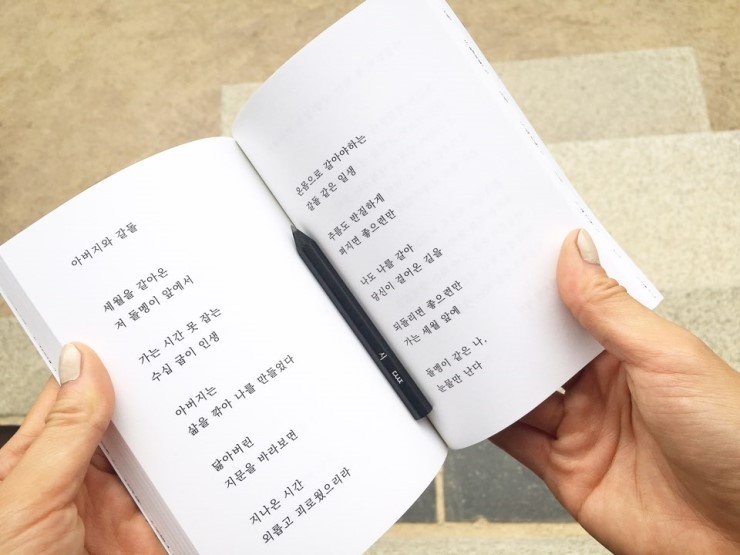 아버지와 갈돌
세월을 갈아온
저 돌맹이 앞에서
가는 시간 못 잡는
수십 굽이 인생
아버지는
삶을 깎아 나를 만들었다
닳아버린
지문을 바라보면
지나온 시간
외롭고 괴로웠으리라
온몸으로 갈아야하는
갈돌 같은 일생
주름도 반질하게
펴지면 좋으련만
나도 나를 갈아
당신이 걸어온 길을
되돌리면 좋으련만
가는 세월 앞에
돌맹이 같은 나,
눈물만 난다